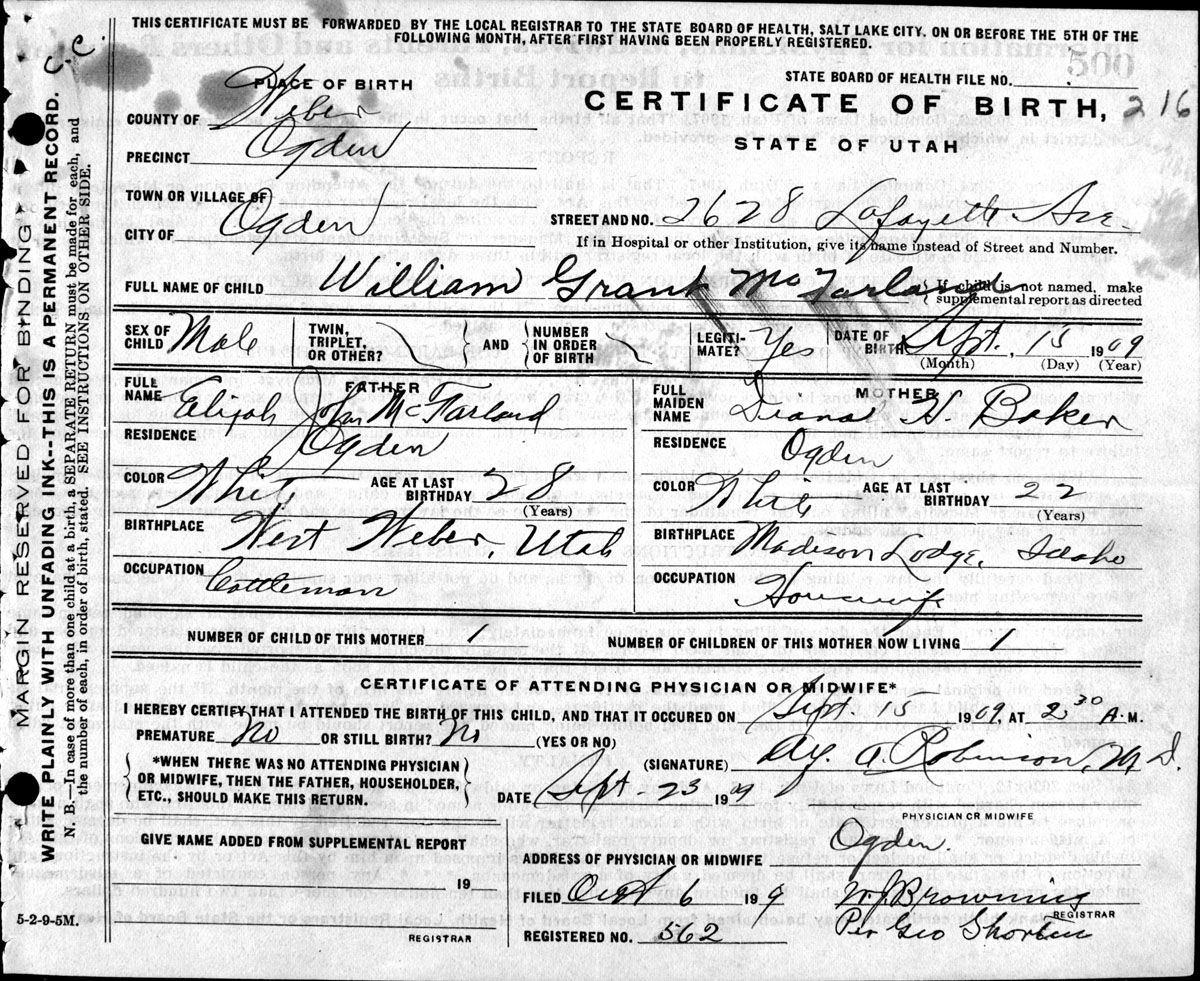 THIS CERTIFICATE MUST BE FORWARDED BY THE LOCAL REGISTRAR TO THE STATE BOARD OF HEALTH, SALT LAKE CITY, ON OR BEFORE THE 5TH OF THE
FOLLOWING MONTH, AFTER FIRST HAVING BEEN PROPERLY REGISTERED.
C.C.
500
PLACE OF BIRTH
STATE BOARD OF HEALTH FILE NO.
COUNTY OF Weber
CERTIFICATE OF BIRTH, 216
PRECINCT Ogden
STATE OF UTAH
TOWN OR VILLAGE OF
CITY OF Ogden
STREET AND NO. 2628 Lafayette Ave
If in Hospital or other Institution, give its name instead of Street and Number.
FULL NAME OF CHILD William Grant McFarland
If child is not named, make
supplemental report as directed
SEX OF CHILD Male
TWIN, TRIPLET, OR OTHER?
AND
NUMBER IN ORDER OF BIRTH
LEGITIMATE? Yes
DATE OF BIRTH Sept. 15 1909
(Month) (Day) (Year)
FATHER
FULL NAME Elijah John McFarland
RESIDENCE Ogden
COLOR White AGE AT LAST BIRTHDAY 28
(Years)
BIRTHPLACE West Weber, Utah
OCCUPATION Cattleman
MOTHER
FULL MAIDEN NAME Diana H. Baker
RESIDENCE Ogden
COLOR White AGE AT LAST BIRTHDAY 22
(Years)
BIRTHPLACE Madison Lodge, Idaho
OCCUPATION Housewife
NUMBER OF CHILD OF THIS MOTHER 1 NUMBER OF CHILDREN OF THIS MOTHER NOW LIVING 1
CERTIFICATE OF ATTENDING PHYSICIAN OR MIDWIFE*
I HEREBY CERTIFY THAT I ATTENDED THE BIRTH OF THIS CHILD, AND THAT IT OCCURED ON Sept. 15 1909, AT 2 30 A. M.
PREMATURE No OR STILL BIRTH? No (YES OR NO)
*WHEN THERE WAS NO ATTENDING PHYSICIAN
OR MIDWIFE, THEN THE FATHER, HOUSEHOLDER,
ETC., SHOULD MAKE THIS RETURN.
(SIGNATURE) A. Robinson, M.D.
DATE Sept. 23 1909
PHYSICIAN OR MIDWIFE
GIVE NAME ADDED FROM SUPPLEMENTAL REPORT
19
REGISTRAR
5-2-9-5M.
ADDRESS OF PHYSICIAN OR MIDWIFE Ogden.
FILED Oct 6 199 W. J. Browning
REGISTRAR
REGISTERED NO. 562 Per Geo Shorten
MARGIN RESERVED FOR BINDING
WRITE PLAINLY WITH UNFADING INK--THIS IS A PERMANENT RECORD.
N. B.—In case of more than one child at a birth, a SEPARATE RETURN must be made for each, and
the number of each, in order of birth, stated. SEE INSTRUCTION ON OTHER SIDE.